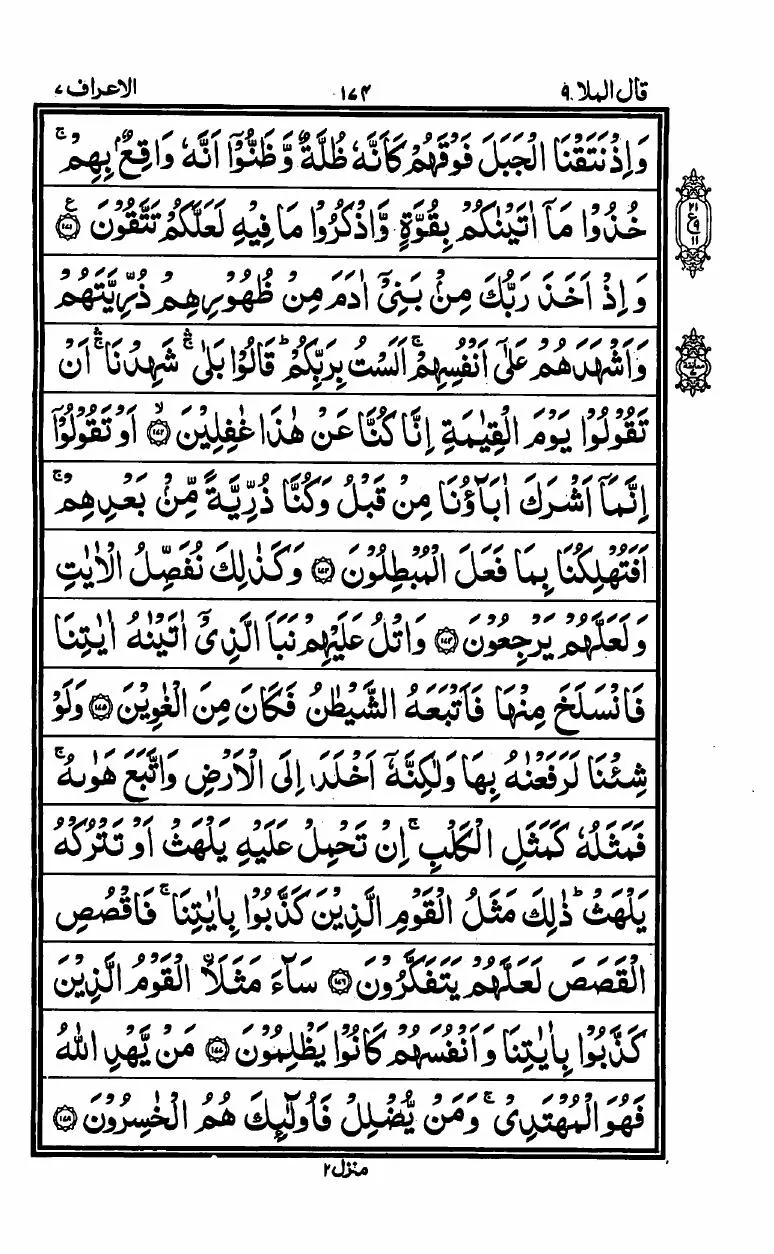 قال الملا ۹
۱۷۴
الاعراف ۷
وَاِذْ نَتَقْنَا الْجَبَلَ فَوْقَهُمْ كَاَنَّهٗ ظُلَّةٌ وَّظَنُّوْۤا اَنَّهٗ وَاقِعٌۢ بِهِمْ ۚ
خُذُوْا مَاۤ اٰتَيْنٰكُمْ بِقُوَّةٍ وَّاذْكُرُوْا مَا فِيْهِ لَعَلَّكُمْ تَتَّقُوْنَ ۝۱۷۱ ع
وَاِذْ اَخَذَ رَبُّكَ مِنْۢ بَنِىْۤ اٰدَمَ مِنْ ظُهُوْرِهِمْ ذُرِّيَّتَهُمْ
وَاَشْهَدَهُمْ عَلٰٓى اَنْفُسِهِمْ ۚ اَلَسْتُ بِرَبِّكُمْ ؕ قَالُوْا بَلٰى ۛۚ شَهِدْنَا ۛۚ اَنْ
تَقُوْلُوْا يَوْمَ الْقِيٰمَةِ اِنَّا كُنَّا عَنْ هٰذَا غٰفِلِيْنَ ۙ۝۱۷۲ اَوْ تَقُوْلُوْۤا
اِنَّمَاۤ اَشْرَكَ اٰبَآؤُنَا مِنْ قَبْلُ وَكُنَّا ذُرِّيَّةً مِّنْۢ بَعْدِهِمْ ۚ
اَفَتُهْلِكُنَا بِمَا فَعَلَ الْمُبْطِلُوْنَ ۝۱۷۳ وَكَذٰلِكَ نُفَصِّلُ الْاٰيٰتِ
وَلَعَلَّهُمْ يَرْجِعُوْنَ ۝۱۷۴ وَاتْلُ عَلَيْهِمْ نَبَاَ الَّذِىْۤ اٰتَيْنٰهُ اٰيٰتِنَا
فَانْسَلَخَ مِنْهَا فَاَتْبَعَهُ الشَّيْطٰنُ فَكَانَ مِنَ الْغٰوِيْنَ ۝۱۷۵ وَلَوْ
شِئْنَا لَرَفَعْنٰهُ بِهَا وَلٰكِنَّهٗۤ اَخْلَدَ اِلَى الْاَرْضِ وَاتَّبَعَ هَوٰىهُ ۚ
فَمَثَلُهٗ كَمَثَلِ الْكَلْبِ ۚ اِنْ تَحْمِلْ عَلَيْهِ يَلْهَثْ اَوْ تَتْرُكْهُ
يَلْهَثْ ؕ ذٰلِكَ مَثَلُ الْقَوْمِ الَّذِيْنَ كَذَّبُوْا بِاٰيٰتِنَا ۚ فَاقْصُصِ
الْقَصَصَ لَعَلَّهُمْ يَتَفَكَّرُوْنَ ۝۱۷۶ سَآءَ مَثَلَا ۨالْقَوْمُ الَّذِيْنَ
كَذَّبُوْا بِاٰيٰتِنَا وَاَنْفُسَهُمْ كَانُوْا يَظْلِمُوْنَ ۝۱۷۷ مَنْ يَّهْدِ اللّٰهُ
فَهُوَ الْمُهْتَدِىْ ۚ وَمَنْ يُّضْلِلْ فَاُولٰٓئِكَ هُمُ الْخٰسِرُوْنَ ۝۱۷۸
۲۱
ع ۹
۱۱
معانقة
منزل ۲